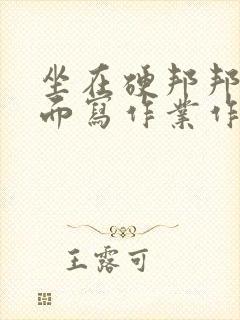 坐在硬邦邦
而寫作業作
王露可